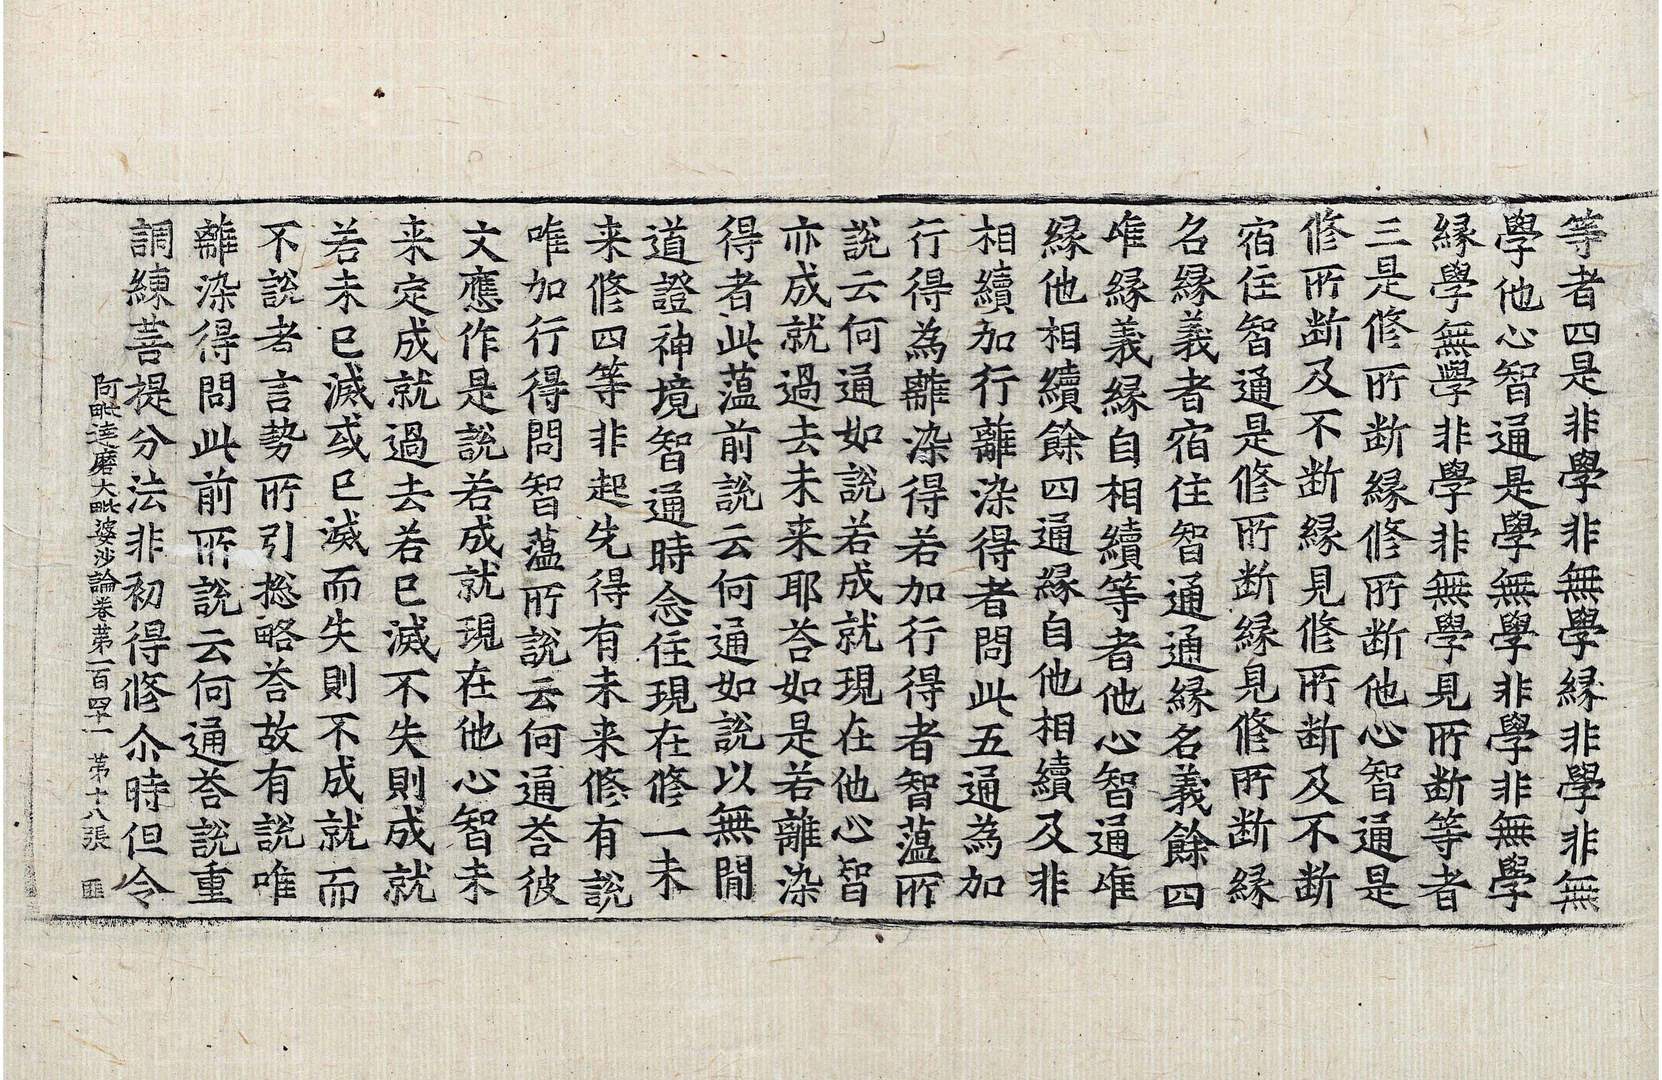 等者四是非學非無學縁非學非無
學他心智通是學無學非學非無學
縁學無學非學非無學見所断等者
三是修所断縁修所断他心智通是
修所断及不断縁見修所断及不断
宿住智通是修所断縁見修所断縁
名縁義者宿住智通通縁名義餘四
唯縁義縁自相續等者他心智通唯
縁他相續餘四通縁自他相續及非
相續加行離染得者問此五通為加
行得為離染得若加行得者智蕰所
說云何通如說若成就現在他心智
亦成就過去未来耶荅如是若離染
得者此蕰前說云何通如說以無間
道證神境智通時念住現在修一未
来修四等非起先得有未来修有說
唯加行得問智蕰所說云何通荅彼
文應作是說若成就現在他心智未
来定成就過去若已滅不失則成就
若未已滅或已滅而失則不成就而
不說者言勢所引捴略荅故有說唯
離染得問此前所說云何通荅說重
調練菩提分法非初得修尒時但令
阿毗達磨大毗婆沙論卷苐一百四十一　苐十八張　匪